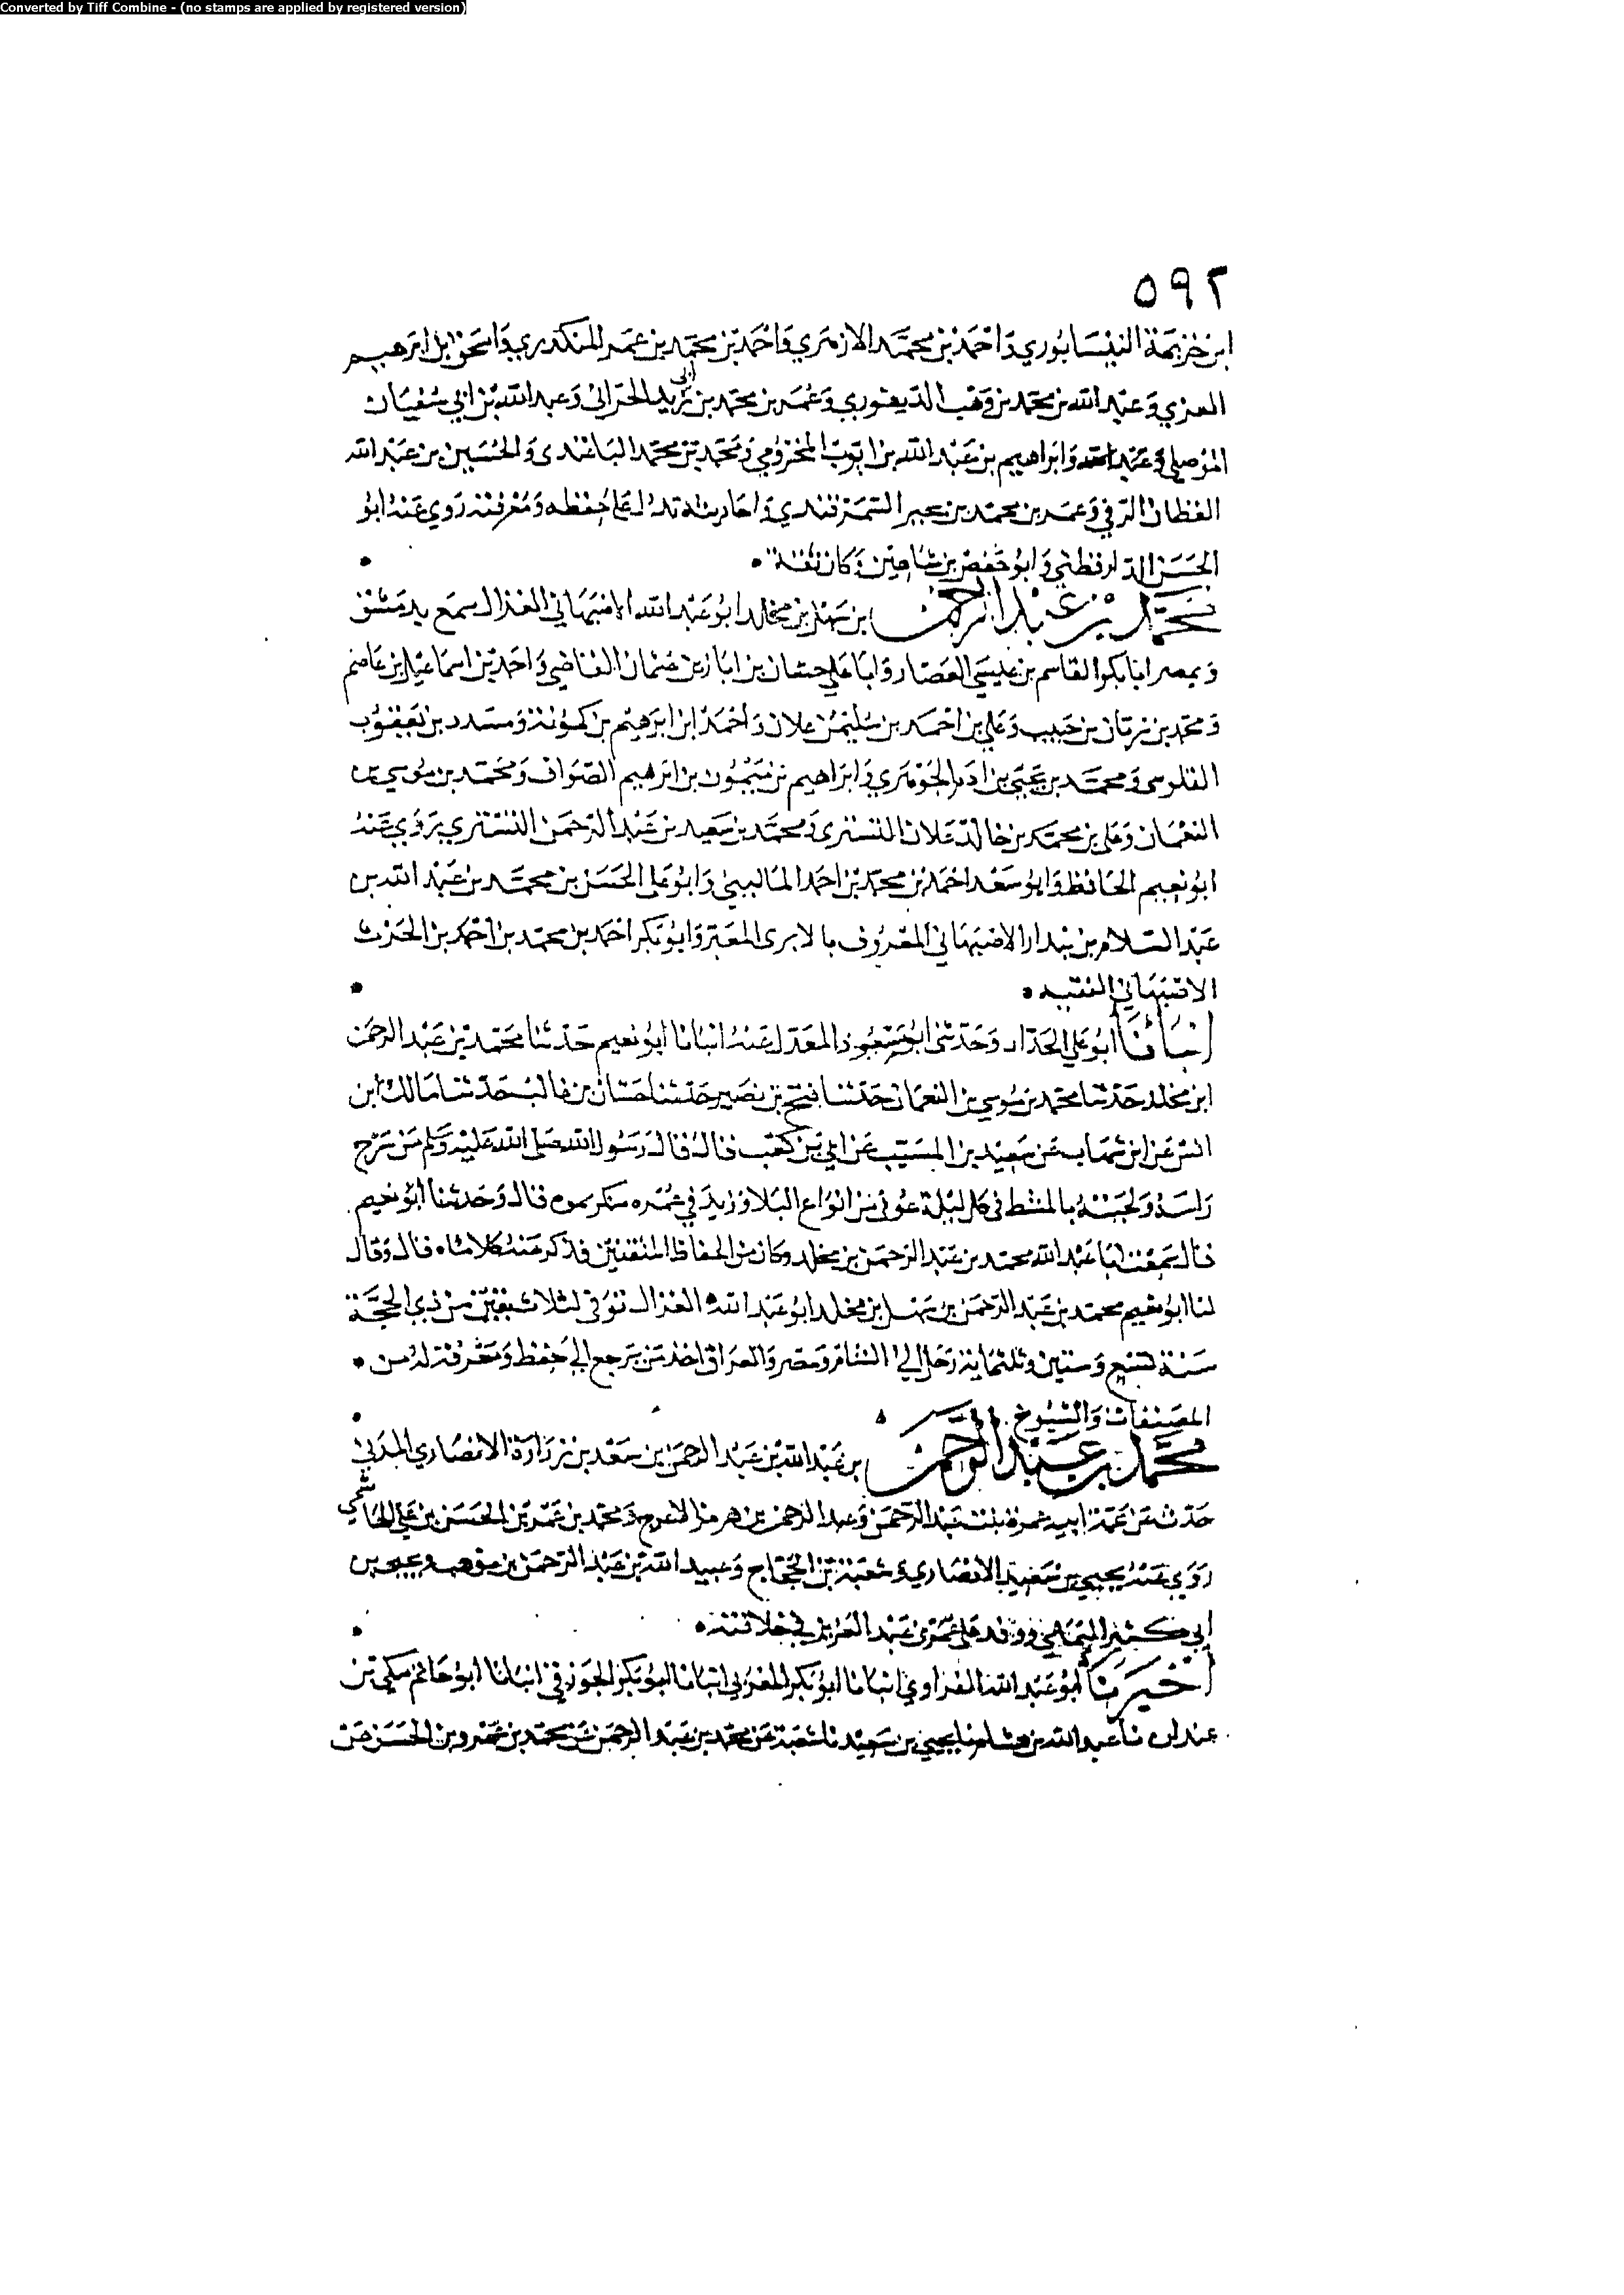 Converted by Tiff Combine - (no stamps are applied by registered version)
٥٩٢
ابن خزيمة النيسابوري واحمد بن محمد الازهري واحمد بن محمد بن عمر المنكدري واسحق بن ابرهيم
الغزي وعبد الله بن محمد بن وهب الدينوري وعمر بن محمد بن ابي زيد الحراني وعبد الله بن ابي سفيان
الموصلي وابراهيم بن عبد الله بن ايوب المخزومي ومحمد بن محمد الباغندي والحسين بن عبد الله
القطان الرقي وعمر بن محمد بن بجير السمرقندي واحاديثه تدل على حفظه ومعرفته روي عنه ابو
الحسن الدارقطني وابو حفص بن شاهين وكان ثقة
محمد بن عبد الرحمن ابن سهل بن مخلد ابو عبد الله الاصبهاني الغزال سمع بدمشق
وبمصر ابا بكر القاسم بن عيسي العصار وابا علي حسان بن ابان بن عثمان القاضي واحمد بن اسماعيل بن عاصم
ومحمد بن زبان بن حبيب وعلي بن احمد بن سليمن علان واحمد ابن ابرهيم بن كمونة ومسدد بن يعقوب
القلوسي ومحمد بن يحيي بن ادم الجوهري وابراهيم بن ميمون بن ابرهيم الصواف ومحمد بن موسي بن
النعمان وعلي بن محمد بن خالد علان التستري ومحمد بن سعيد بن عبد الرحمن التستري يروي عنه
ابو نعيم الحافظ وابو سعد احمد بن محمد بن احمد الماليني وابو علي الحسن بن محمد بن عبد الله بن
عبد السلام بن بندار الاصبهاني المعروف بالابري المعبر وابو بكر احمد بن محمد بن احمد بن الحرث
الاصبهاني الفقيه
انبأنا ابو علي الحداد وحدثني ابو مسعود المعدل عنه انبانا ابو نعيم حدثنا محمد بن عبد الرحمن
ابن مخلد حدثنا محمد بن موسي بن النعمان حدثنا فتح بن نصير حدثنا حسان بن غالب حدثنا مالك ابن
انس عن ابن شهاب عن سعيد بن المسيب عن ابي بن كعب قال قال رسول الله صلى الله عليه وسلم من سرح
راسه ولحيته بالمشط في كل ليلة عوفي من انواع البلا وزيد في عمره منكر بمره قال وحدثنا ابو نعيم
قال سمعت ابا عبد الله محمد بن عبد الرحمن بن مخلد وكان من الحفاظ المتقنين فذكر عنه كلاما قال وقال
لنا ابو نعيم محمد بن عبد الرحمن بن سهل بن مخلد ابو عبد الله الغزال توفي لثلاث بقين من ذي الحجة
سنة تسع وستين وثلثماية رحل الي الشام ومصر والعراق احد من يرجع الي حفظ ومعرفة له من
المصنفات والشيوخ
محمد بن عبد الرحمن بن عبد الله بن عبد الرحمن بن سعد بن زرارة الانصاري المدني
حدث عن عمة ابيه عمرة بنت عبد الرحمن وعبد الرحمن بن هرمز الاعرج ومحمد بن عمرو بن الحسن بن علي الهاشمي
روي عنه يحيي بن سعيد الانصاري وشعبة بن الحجاج وعبيد الله بن عبد الرحمن بن موهب ويحيى بن
ابي كثير اليمامي ووفد على عمر بن عبد العزيز في خلافته
اخبرنا ابو عبد الله الفراوي انبانا ابو بكر المغربي انبانا ابو بكر الجوزقي انبانا ابو حاتم مكي بن
عبدان نا عبد الله بن هشام نا يحيي بن سعيد نا شعبة عن محمد بن عبد الرحمن عن محمد بن عمرو بن الحسن عن